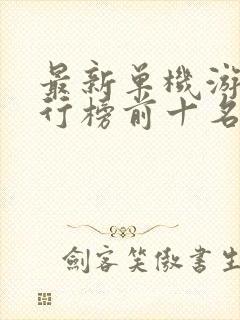 最新單機游
行榜前十名
劍客笑傲書生